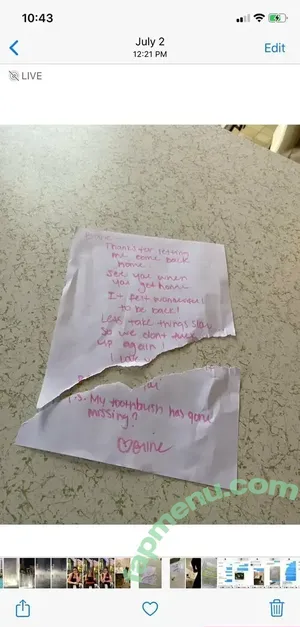 10:43
July 2
12:21 PM
Edit
LIVE
Thanks for letting
me come back
home.
See you when
you get home
It felt
to be back!
Lets take things slow
So we dont
up again!
I Love
P.S. My toothbrush has gone
missing?
fapmenu.com